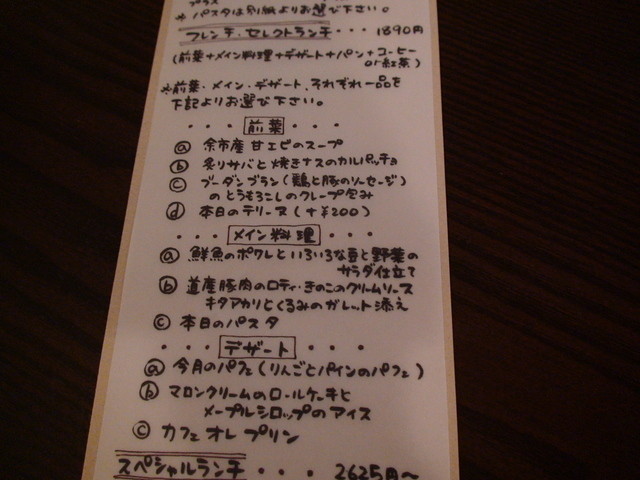 プラス
※ パスタは別紙よりお選び下さい。
フレンチ・セレクトランチ・・・1890円
(前菜+メイン料理+デザート+パン+コーヒー
or紅茶)
※前菜・メイン・デザート、それぞれ一品を
下記よりお選び下さい。
・・・前菜・・・
ⓐ 余市産 甘エビのスープ
ⓑ 炙りサバと焼きナスのカルパッチョ
ⓒ ブーダンブラン(鶏と豚のソーセージ)
のとうもろこしのクレープ包み
ⓓ 本日のテリーヌ(+¥200)
・・・メイン料理・・・
ⓐ 鮮魚のポワレといろいろな豆と野菜の
サラダ仕立て
ⓑ 道産豚肉のロティ・きのこのクリームソース
キタアカリとくるみのガレット添え
ⓒ 本日のパスタ
・・・デザート・・・
ⓐ 今月のパフェ(りんごとパインのパフェ)
ⓑ マロンクリームのロールケーキと
メープルシロップのアイス
ⓒ カフェオレプリン
スペシャルランチ・・・2625円〜